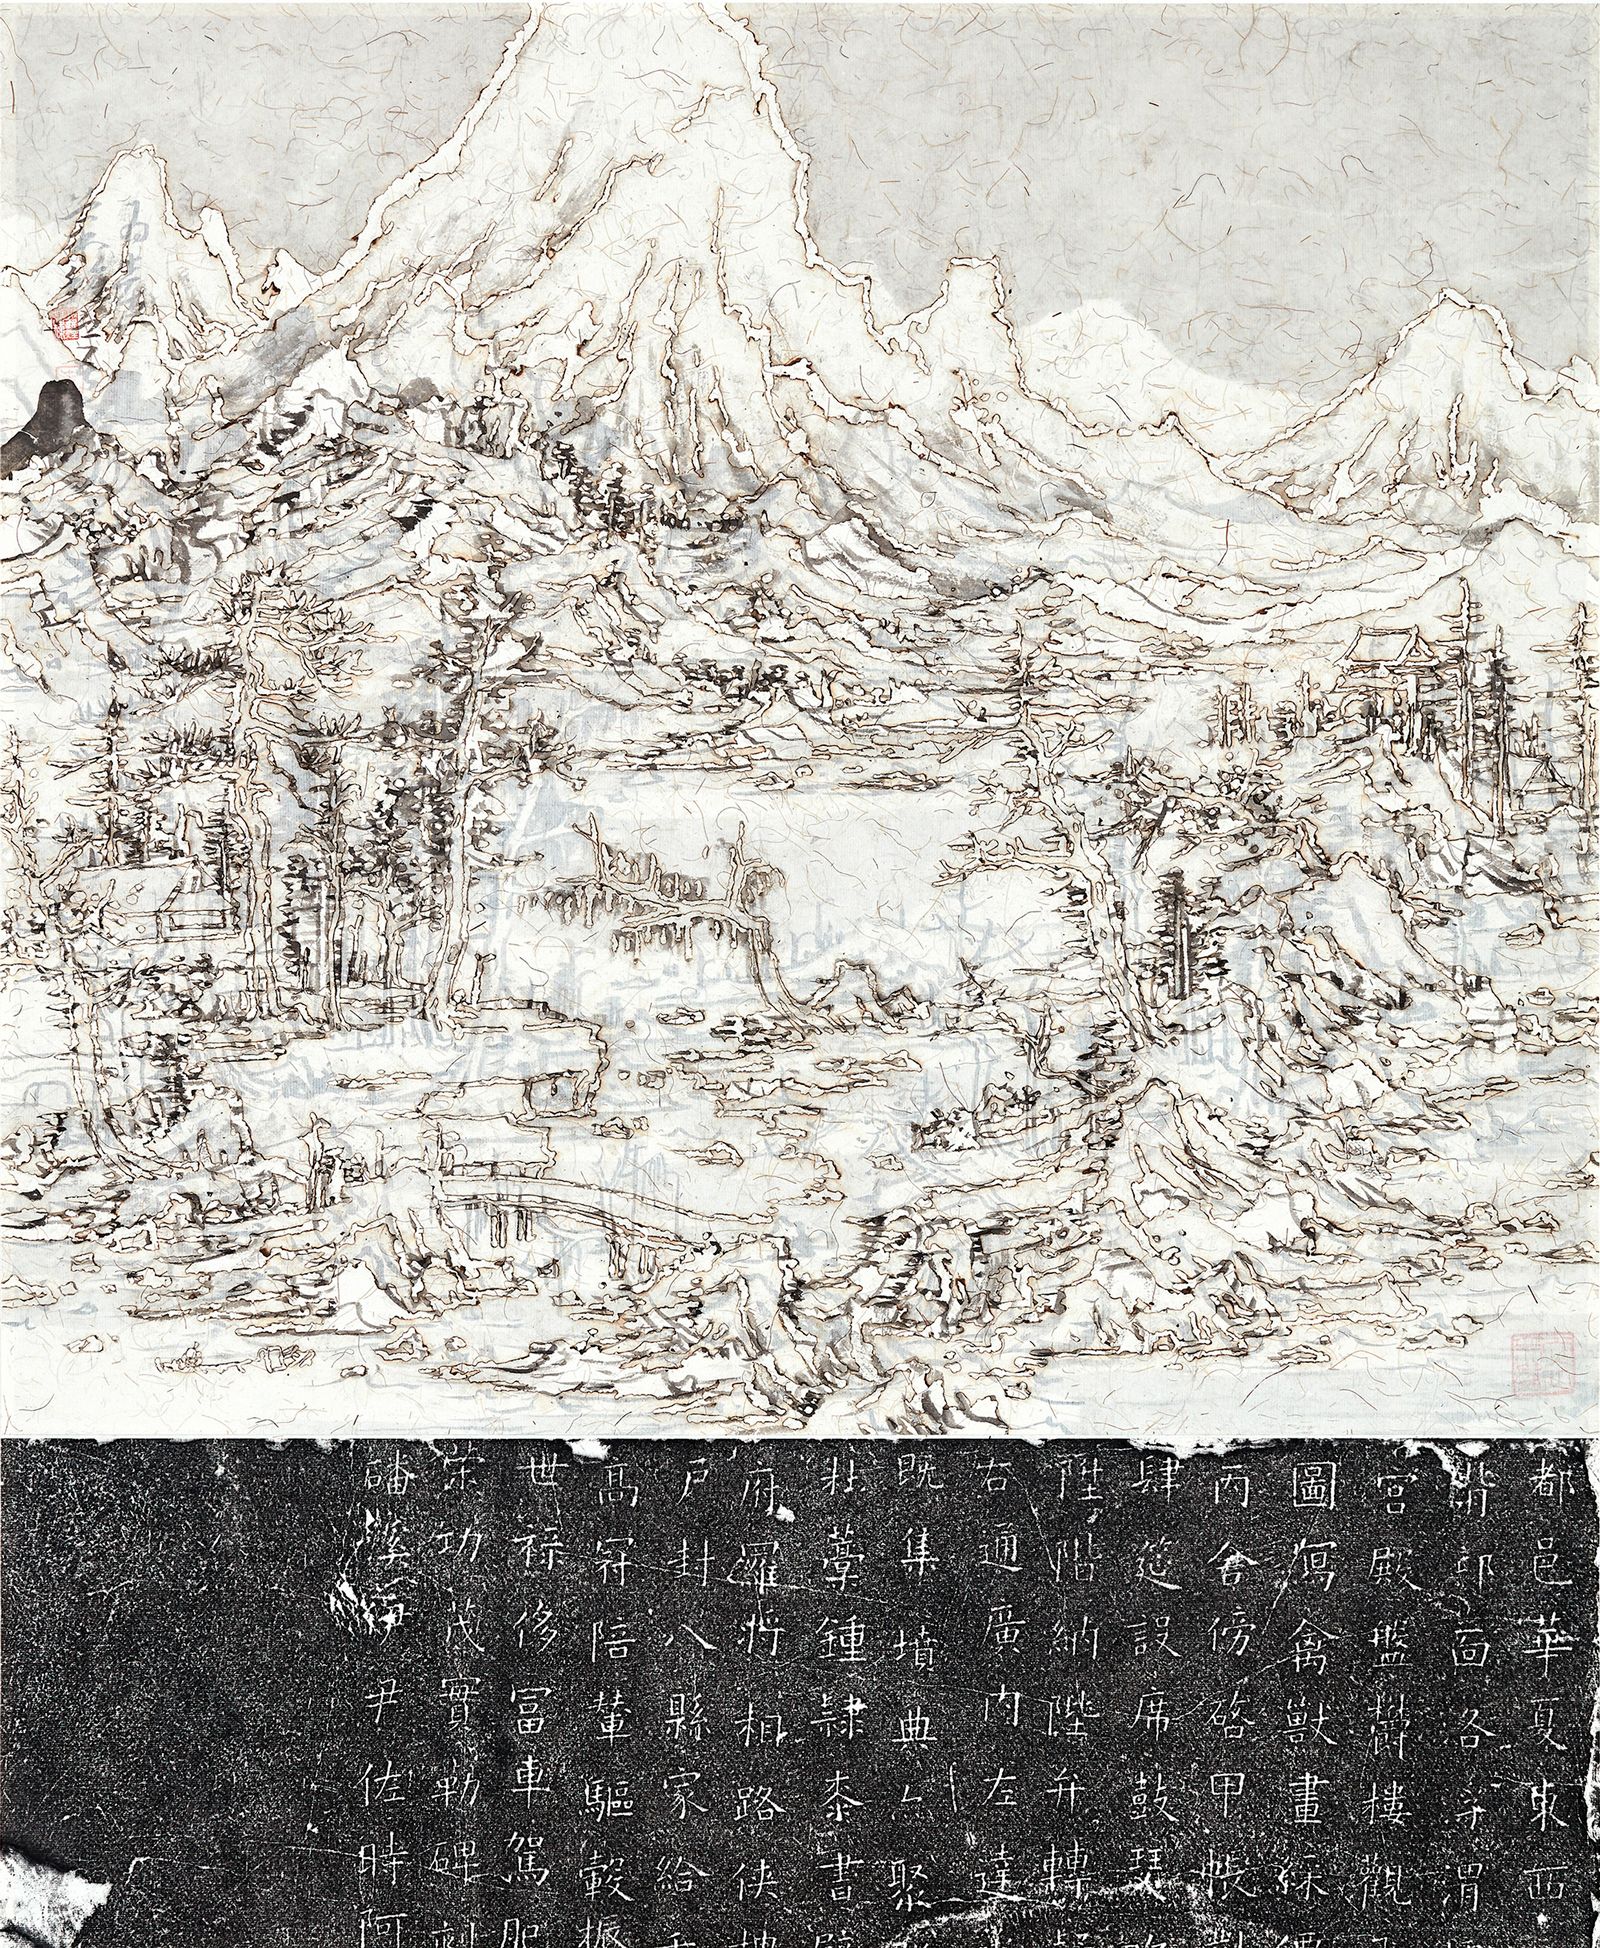 都邑華夏東西
背邙面洛浮渭
宮殿盤欝樓觀
圖寫禽獸畫綵
丙舍傍啓甲帳對
肆筵設席鼓瑟
陞階納陛弁轉疑
右通廣內左達
既集墳典亦聚
杜稾鍾隸漆書壁
府羅將相路俠槐
戶封八縣家給千
高冠陪輦驅轂振
世祿侈富車駕肥
策功茂實勒碑刻
磻溪伊尹佐時阿